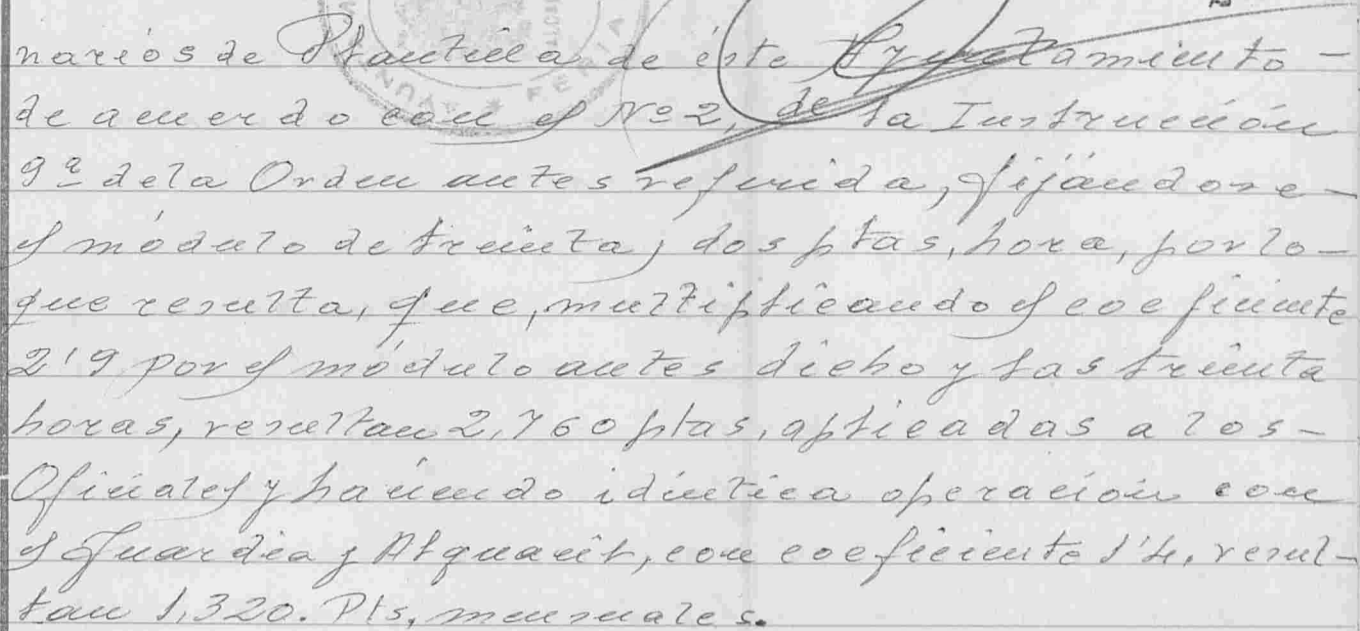 narios de Plantilla de éste Ayuntamiento -
de acuerdo con el Nº 2, de la Instrucción
9ª de la Orden antes referida, fijándose -
el módulo de treinta y dos ptas, hora, por lo -
que resulta, que, multiplicando el coeficiente
2'9 por el módulo antes dicho y las treinta
horas, resultan 2,760 ptas, aplicadas a los -
Oficiales y haciendo idéntica operación con
el Guardia y Alguacil, con coeficiente 1'4. resul-
tan 1,320. Pts, mensuales.
FERIA